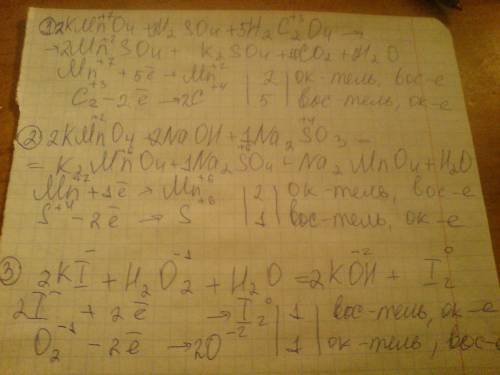 ① 2KMn⁺⁷O₄ + H₂SO₄ + 5H₂C₂⁺³O₄ →
→ 2Mn⁺²SO₄ + K₂SO₄ + CO₂ + H₂O
Mn⁺⁷ + 5ē → Mn⁺² | 2 | ок-тель, вос-е
C₂⁺³ - 2ē → 2C⁺⁴ | 5 | вос-тель, ок-е
② 2KMnO₄ + 2NaOH + 1Na₂S⁺⁴O₃ -
= K₂Mn⁺⁶O₄ + 1Na₂S⁺⁶O₄ - Na₂MnO₄ + H₂O
Mn + 1ē → Mn⁺⁶ | 2 | ок-тель, вос-е
S⁺⁴ - 2ē → S⁺⁶ | 1 | вос-тель, ок-е
③ 2KI⁻ + H₂O₂⁻¹ + H₂O = 2KO⁻²H + I₂⁰
2I⁻ + 2ē → I₂⁰ | 1 | вос-тель, ок-е
O₂⁻¹ - 2ē → 2O⁻² | 1 | ок-тель, вос-е